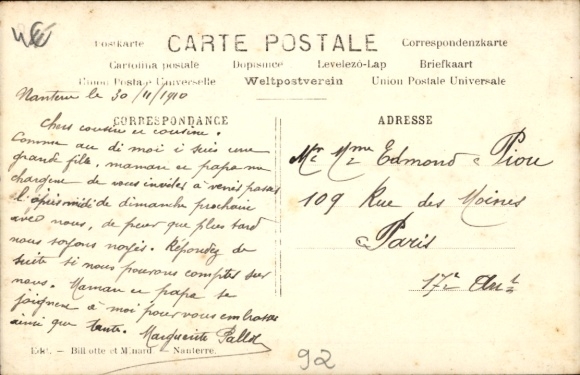 Postkarte CARTE POSTALE Correspondenzkarte
Cartolina postale Dopisnice Levelező-Lap Briefkaart
Union Postale Universelle Weltpostverein Union Postale Universale
Nanterre le 30/11/1910
CORRESPONDANCE
Chers cousin et cousine.
Comme on dit moi i suis une
grande fille, maman et papa me
chargent de vous inviter à venir passer
l'après midi de dimanche prochain
avec nous, de peur que plus tard
nous soyons noyés. Répondez de
suite si nous pouvons compter sur
vous. Maman et papa se
joignent à moi pour vous embrasser
ainsi que tante. Marguerite
Edit. - Billotte et Minard - Nanterre.
ADRESSE
Mr Mme Edmond Piou
109 Rue des Moines
Paris
17e Art
92